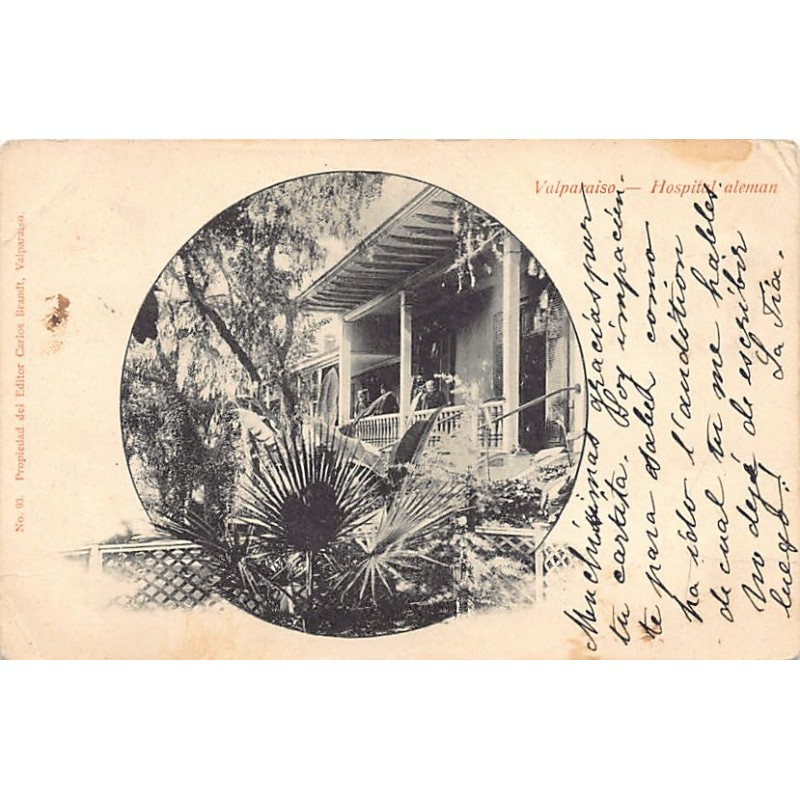 Valparaiso — Hospital aleman
No. 93. Propiedad del Editor Carlos Brandt, Valparaiso.
Muchísimas gracias por
tu cartita. Doy impacien-
te para saber como
ha ido l'audition
de cual tu me hables
No dejé de escribir
luego!
La Tia.